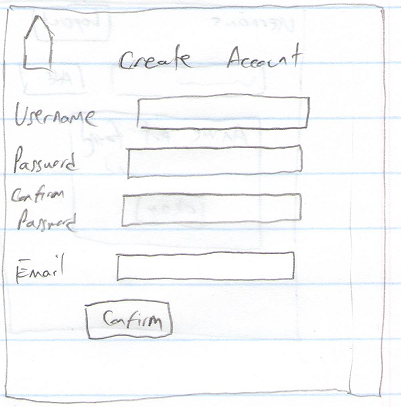 Create Account
Username
Password
Confirm
Password
Email
Confirm